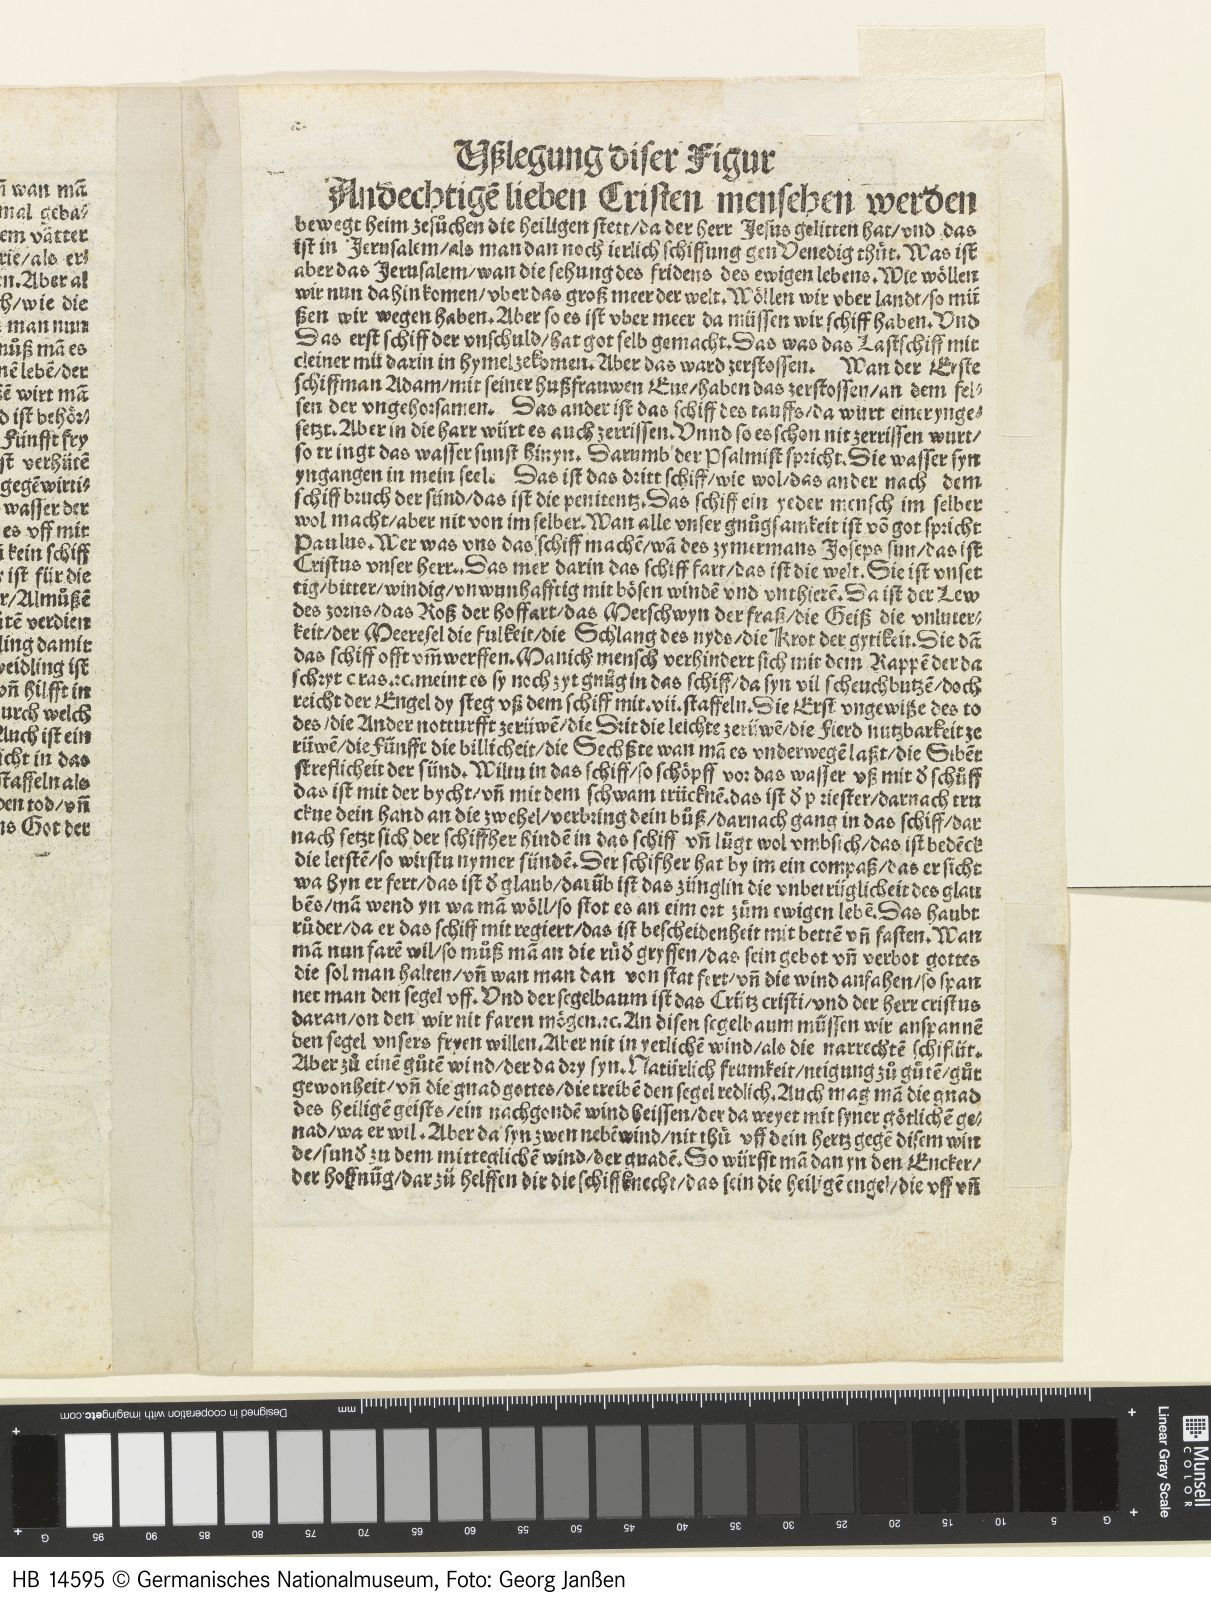 n̄ wan mā
mal geba⸗
em vätter
rie/als er⸗
en.Aber al
ch/wie die
man nun
můß mā es
nē lebē/der
ē wirt mā
d ist behör⸗
Fünfft fry
st verhütē
gegēwirti⸗
wasser der
es vff mit
kein schiff
ist für die
r/Almůßē
itē verdien
ling damit
weidling ist
vn̄ hilfft in
urch welch
Auch ist ein
icht in das
staffeln als
den tod/vn̄
ns Got der
Vßlegung diser Figur
Andechtigē lieben Cristen menschen werden
bewegt heim zesůchen die heiligen stett/da der herr Jesus gelitten hat/vnd das
ist in Jerusalem/als man dan noch ierlich schiffung gen Venedig thůt. Was ist
aber das Jerusalem/wan die sehung des fridens des ewigen lebens. Wie wöllen
wir nun da hin komen/vber das groß meer der welt. Wöllen wir vber landt/so mü
ßen wir wegen haben. Aber so es ist vber meer da müssen wir schiff haben. Vnd
Das erst schiff der vnschuld/hat got selb gemacht. Das was das Lastschiff mit
cleiner mü darin in hymel zekomen. Aber das ward zerstossen. Wan der Erste
schiffman Adam/mit seiner hußfrauwen Eue/haben das zerstossen/an dem fel⸗
sen der vngehorsamen. Das ander ist das schiff des tauffs/da würt einer ynge⸗
setzt. Aber in die harr würt es auch zerrissen. Vnnd so es schon nit zerrissen wurt/
so tringt das wasser sunst hinyn. Darumb der Psalmist spricht. Die wasser syn
yngangen in mein seel. Das ist das dritt schiff/wie wol/das ander nach dem
schiff bruch der sünd/das ist die penitentz. Das schiff ein yeder mensch im selber
wol macht/aber nit von im selber. Wan alle vnser gnůgsamkeit ist vō got spricht
Paulus. Wer was vns das schiff machē/wā des zymermans Joseps sun/das ist
Cristus vnser herr. Das mer darin das schiff fart/das ist die welt. Sie ist vnset
tig/bitter/windig/vnwunhafftig mit bösen windē vnd vnthierē. Da ist der Lew
des zorns/das Roß der hoffart/das Merschwyn der fraß/die Geiß die vnluter⸗
keit/der Meeresel die fulkeit/die Schlang des nyds/die Krot der gytikeit. Die dā
das schiff offt vm̄werffen. Manich mensch verhindert sich mit dem Rappē der da
schryt cras.⁊c.meint es sy noch zyt gnůg in das schiff/da syn vil scheuchbutzē/doch
reicht der Engel dy steg vß dem schiff mit.vii.staffeln. Die Erst vngewiße des to
des/die Ander notturfft zerüwē/die Drit die leichte zerüwē/die Fierd nutzbarkeit ze
rüwē/die Fünfft die billicheit/die Sechßte wan mā es vnderwegē laßt/die Sibēt
streflicheit der sünd. Wiltu in das schiff/so schöpff vor das wasser vß mit d̄ schůff
das ist mit der bycht/vn̄ mit dem schwam trücknē.das ist d̄ priester/darnach tru
ckne dein hand an die zwehel/verbring dein bůß/darnach gang in das schiff/dar
nach setzt sich der schiffher hindē in das schiff vn̄ lůgt wol vmbsich/das ist bedēck
die letstē/so wirstu nymer sündē. Der schifher hat by im ein compaß/das er sicht
wa hyn er fert/das ist d̄ glaub/darūb ist das zünglin die vnbetrüglicheit des glau
bēs/mā wend yn wa mā wöll/so stot es an eim ort zům ewigen lebē. Das haubt
růder/da er das schiff mit regiert/das ist bescheidenheit mit bettē vn̄ fasten. Wan
mā nun farē wil/so můß mā an die růd̄ gryffen/das sein gebot vn̄ verbot gottes
die sol man halten/vn̄ wan man dan von stat fert/vn̄ die wind anfahen/so span
net man den segel vff. Vnd der segelbaum ist das Crütz cristi/vnd der herr cristus
daran/on den wir nit faren mögen.⁊c. An disen segelbaum müssen wir anspannē
den segel vnsers fryen willen. Aber nit in yetlichē wind/als die narrechtē schiflüt.
Aber zů einē gůtē wind/der da dry syn. Natürlich frumkeit/neigung zů gůtē/gůt
gewonheit/vn̄ die gnad gottes/die treibē den segel redlich. Auch mag mā die gnad
des heiligē geists/ein nachgondē wind heissen/der da weyet mit syner götlichē ge⸗
nad/wa er wil. Aber da syn zwen nebēwind/nit thů vff dein hertz gegē disem win
de/sund̄ zu dem mitteglichē wind/der gnadē. So würfft mā dan yn den Encker/
der hoffnūg/darzů helffen dir die schiffknecht/das sein die heiligē engel/die vff vn̄
Designed in cooperation with imagingetc.com
mm
G 95 90 85 80 75 70 65 60 55 50 45 40 35 30 25 20 15 10 5 G
Linear Gray Scale
Munsell
COLOR
HB 14595 © Germanisches Nationalmuseum, Foto: Georg Janßen